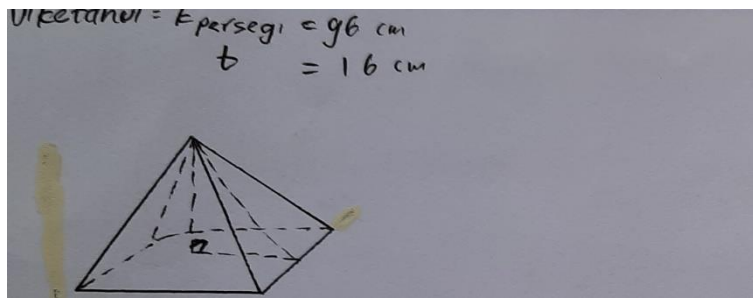 Diketahui = k persegi = 96 cm
t = 16 cm